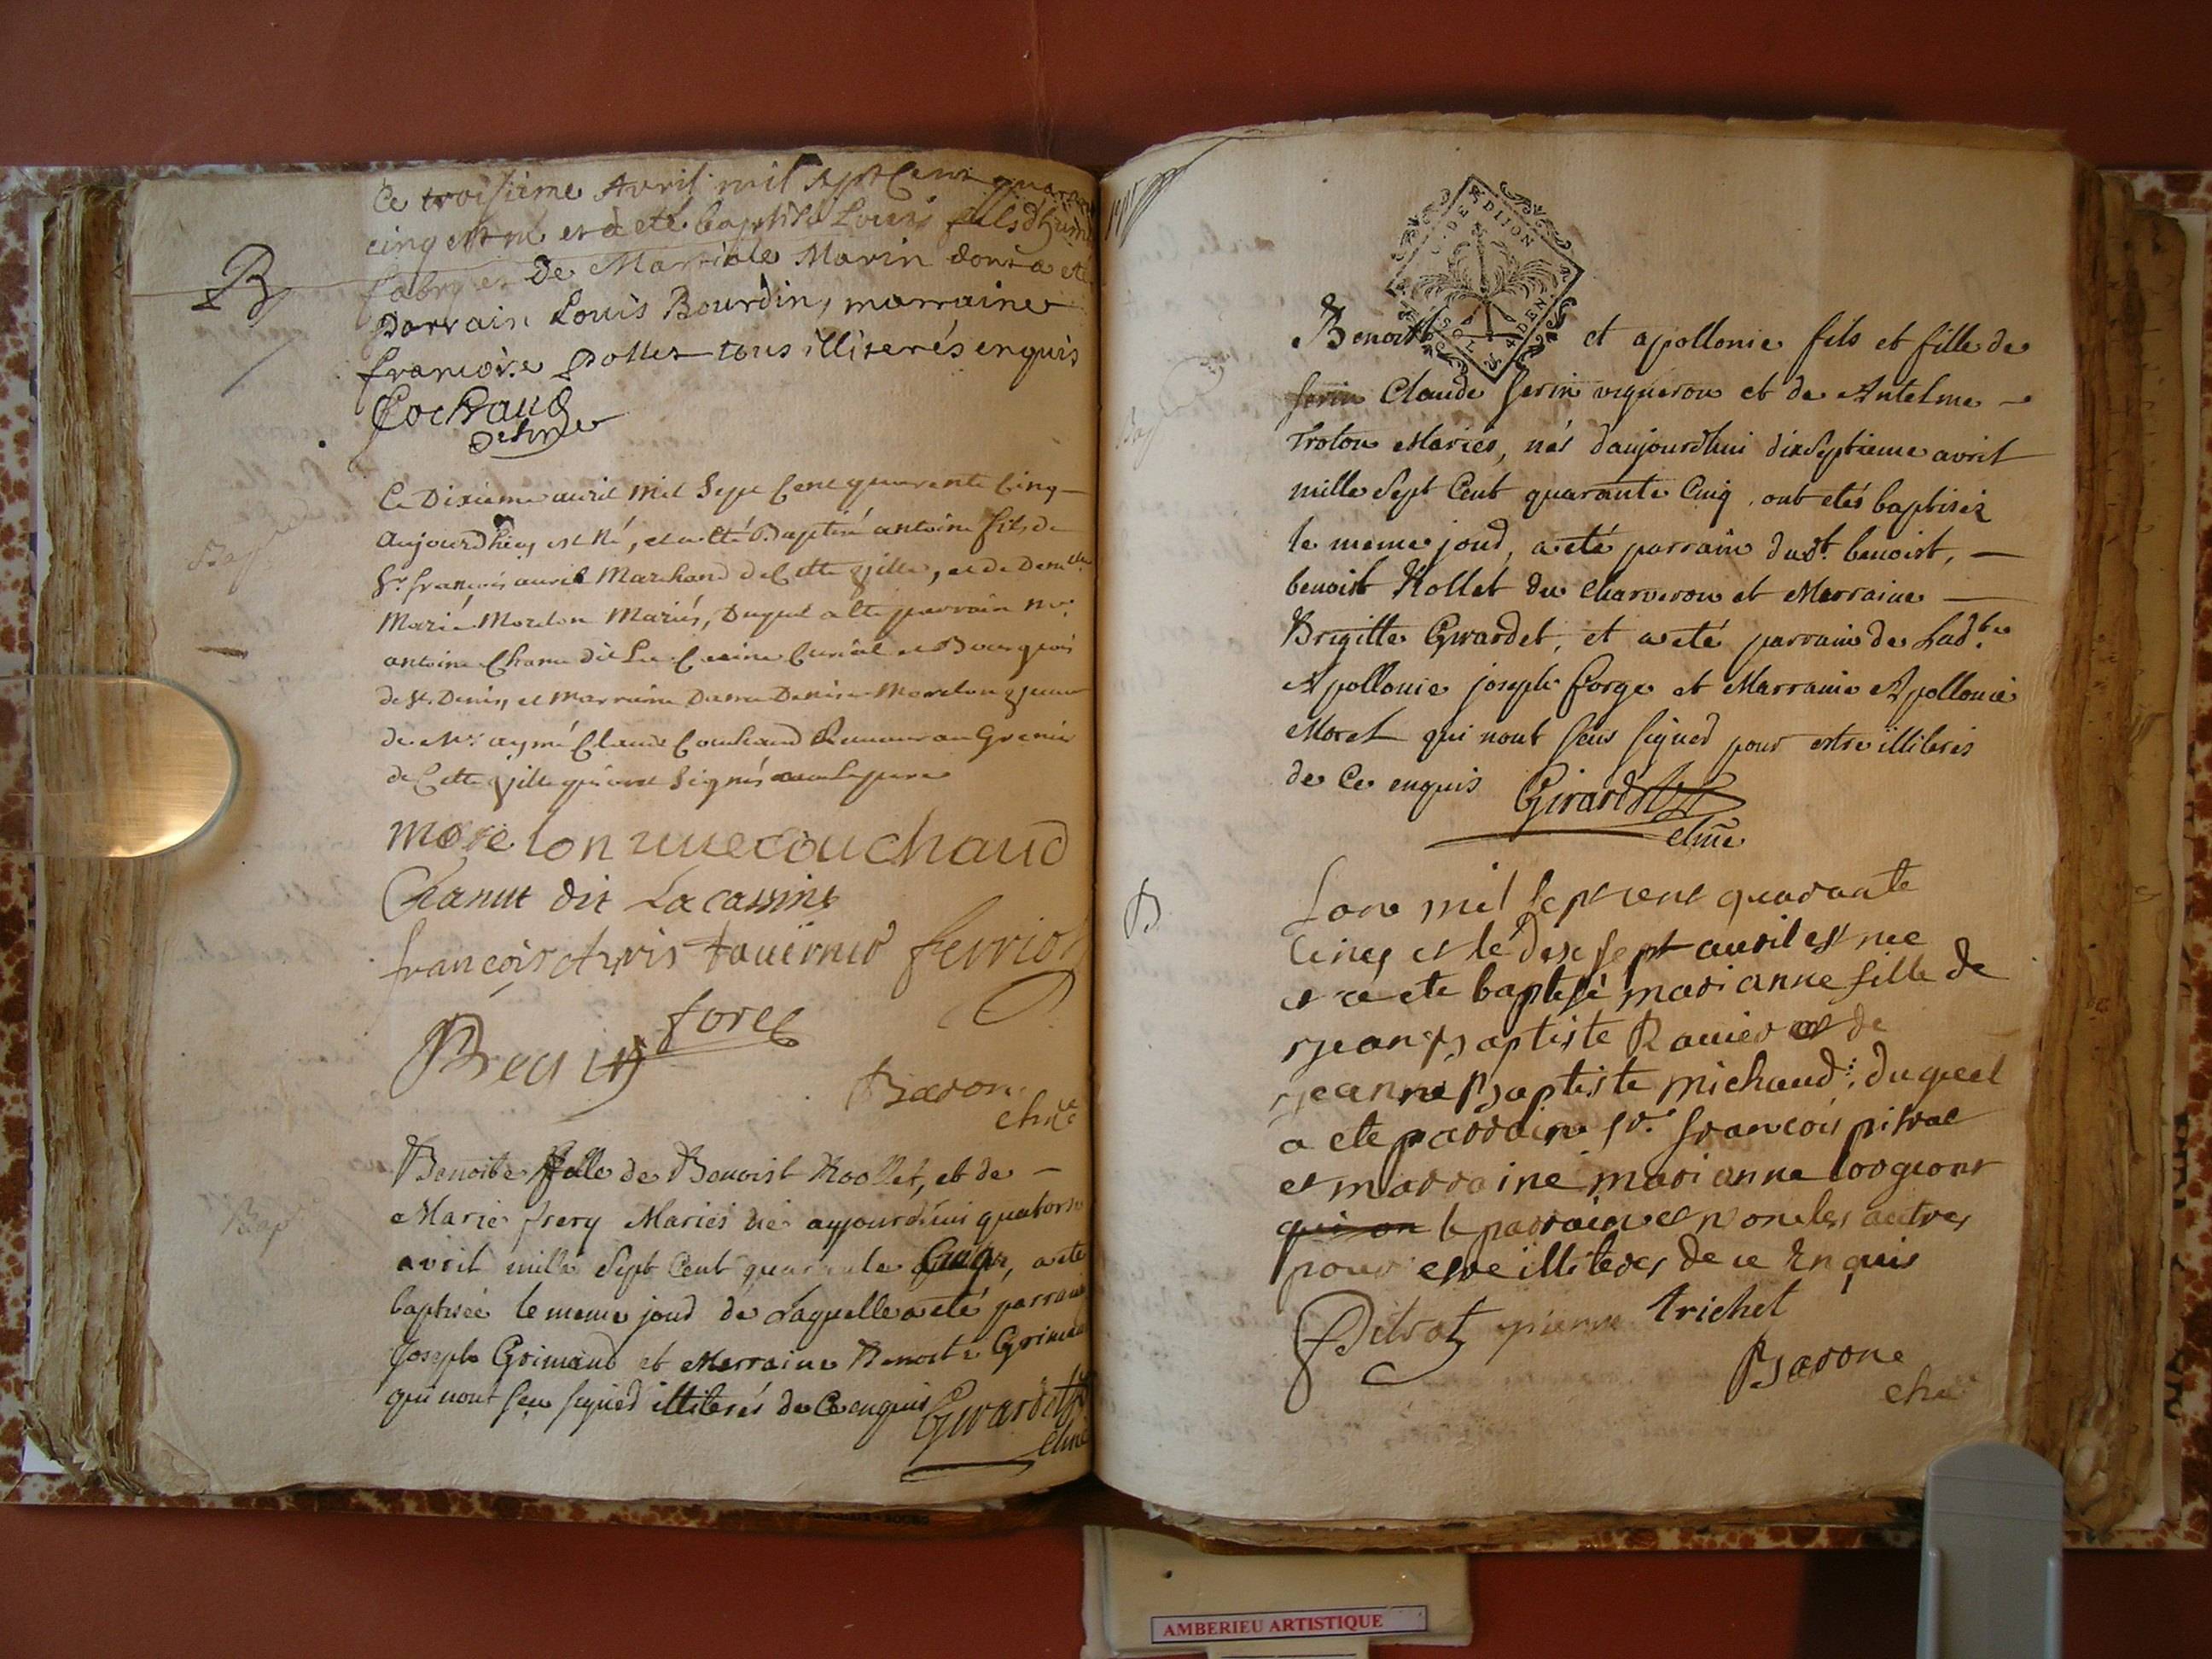 B
Ce troisieme Avril mil sept Cent quarante
cinq est né et a eté baptisé Louis fils d'hum
fabry et De Martiale Marin dont a eté
parrain Louis Bourdin, marraine
francoise pollet tous illiterés enquis
Cochaud
Ce Dixieme avril mil Sept Cent quarente Cinq
aujourdhuy est né, et a eté Baptisé antoine fils de
Sr. françois auril Marchand de Cette Ville, et de Demlle
Marie Morelon Mariés, Duquel a eté parrain Mr.
antoine Chanu dit La Cassine Curial et Bourgeois
de St. Denis, et marraine Dame Denise Morelon veuve
de Mr. aymé Claude Couchaud Receveur au Grenier
de Cette Ville qui ont Signés avec le pere
morelon veuve couchaud
Chanut dit Lacassine
françois Avris tavernier ferrio
forel
Baron
chre
Bap
Benoite fille de Benoist Roollet, et de
Marie frery Mariés née aujourdhui quatorse
avril mille Sept Cent quarante Cinq, a eté
baptisée le meme jour de Laquelle a eté parrain
Joseph Grimaud et Marraine Benoite Grimau
qui nont seu signer illiterés de Ce enquis Girardet
chre
G. DE DIJON
SOL 4 DEN
Benoist et apollonie fils et fille de
Claude serin vigneron et de Antelme
Troton Mariés, nés daujourdhui dixseptieme avril
mille Sept Cent quarante Cinq, ont etés baptisez
le meme jour, a eté parrain dudt. benoist,
benoist Rollet du Charveron et Marraine
Brigitte Girardet, et a eté parrain de Ladte
Apollonie joseph forge et Marraine Apollonie
Morel qui nont seus signer pour estre illiterés
de Ce enquis Girardet
chre
B
Lan mil sept cent quarante
Cinq et le dix sept auril est nee
et a ete baptisé mari anne fille de
jean Baptiste Ravier et de
jeanne Baptiste michaud: duquel
a ete parrain sr. françois pitrat
et marraine mari anne lorgeont
qui on le parrain et non les autres
pour estre illiteres de ce Enquis
Pitrat pierre trichet
Baron
chre
AMBERIEU ARTISTIQUE